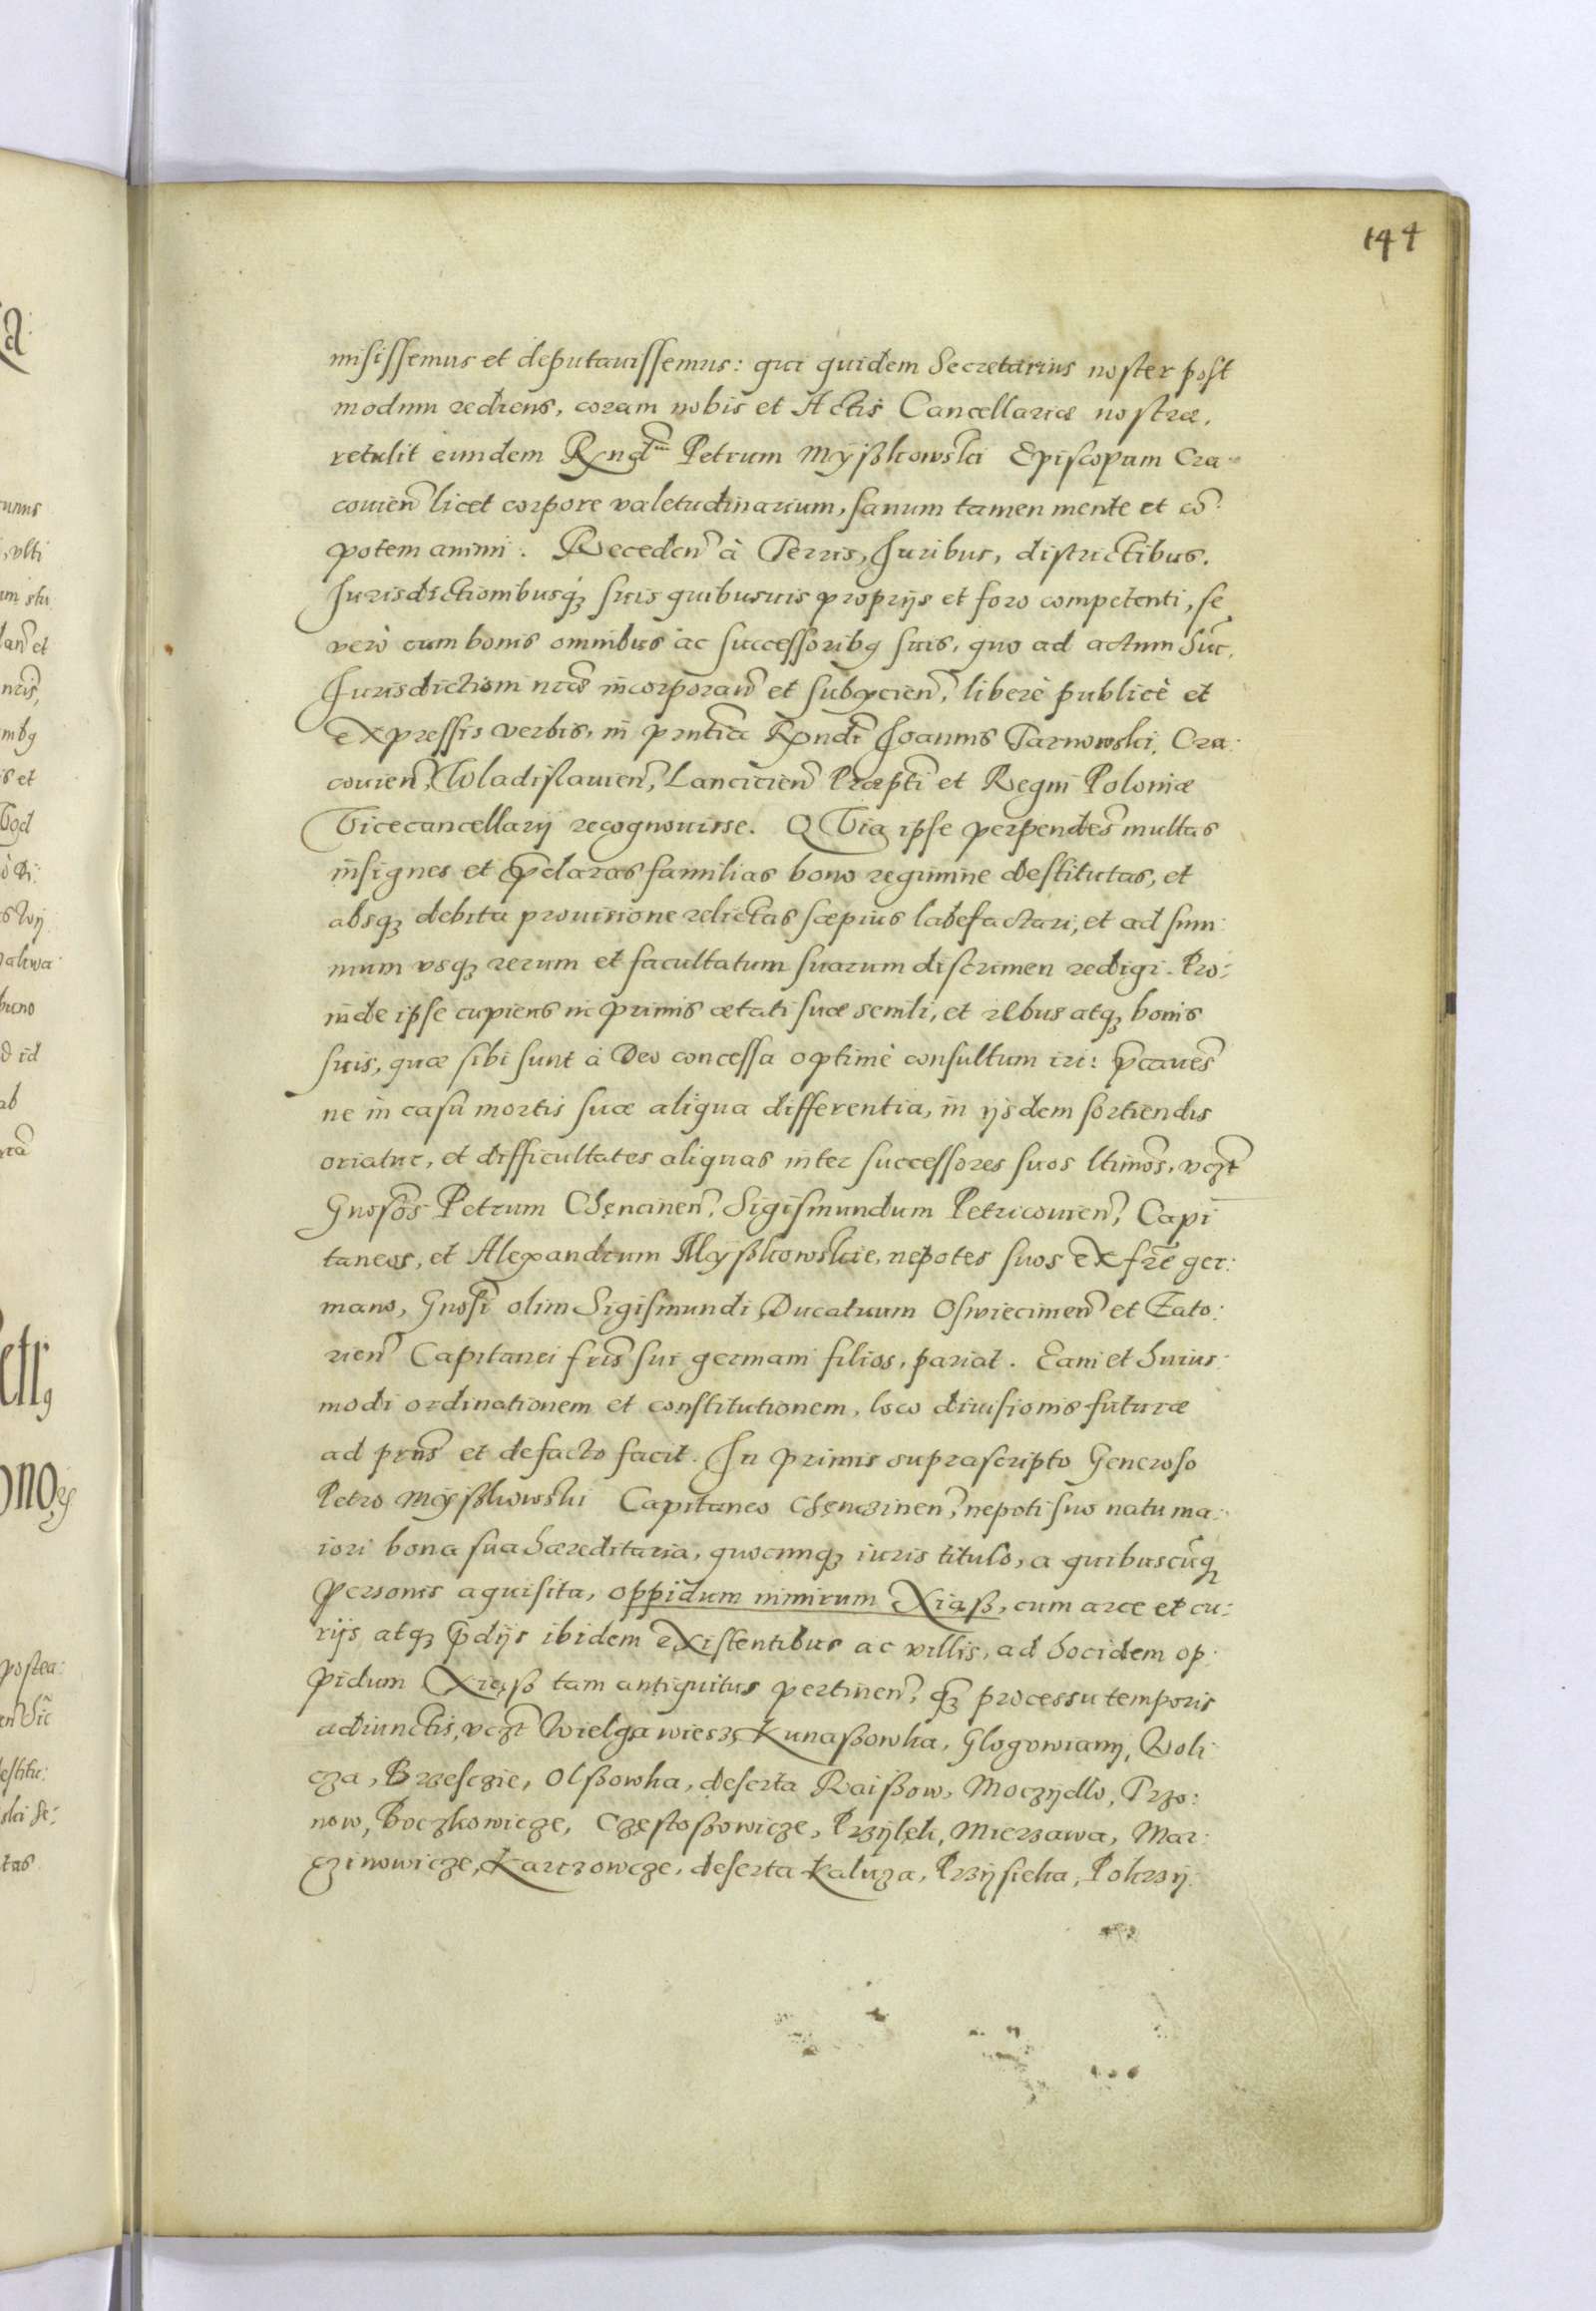 144
misissemus et deputauissemus: qui quidem Secretarius noster post
modum rediens, coram nobis et Actis Cancellariæ nostræ,
retulit eundem Rxndm̄ Petrum Myßkowski Episcopum Cra-
couien̄ licet corpore valetudinarium, sanum tamen mente et cō
potem animi. Receden̄ à Terris, Iuribus, districtibus.
Iurisdictionibusq́ȝ suis quibusuis proprijs et foro competenti, se
verò cum bonis omnibus ac successoribꝯ suis, quo ad actum hūc,
Iurisdictioni nr̄æ incorporan̄ et subycien̄, liberè publicè et
expressis verbis, in pn̄tia Rx̄ndi Joannis Tarnowski, Cra:
couien̄, Wladislauien̄, Lancicien̄ Præpti et Regni Poloniæ
Vicecancellarij recognouisse. QVia ipse perpendēs multas
insignes et p̄claras familias bono regimine destitutas, et
absqȝ debita prouisione relictas sæpius labefactari, et ad sum:
mum vsqȝ rerum et facultatum suarum discrimen redigi. Pro:
inde ipse cupiens in primis ætati suæ senili, et rebus atqȝ bonis
suis, quæ sibi sunt à Deo concessa optimè consultum iri: p̄cauēs
ne in casu mortis suæ aliqua differentia, in ijsdem sortiendis
oriatur, et difficultates aliquas inter successores suos ltimōs, vcȝt̄
Gnosōs Petrum Chęncinen̄, Sigismundum Petricouien̄, Capi
taneos, et Alexandrum Myßkowskie, nepotes suos ex fr̄e ger:
mano, Gnosī olim Sigismundi Ducatuum Oswiecimen̄ et Zato:
rien̄ Capitanei fr̄is sui germani filios, pariat. Eam et huius:
modi ordinationem et constitutionem, loco diuisionis futuræ
ad prn̄s et defacto facit. In primis suprascripto Generoso
Petro Myßkowski Capitaneo Chęnczinen̄, nepoti suo natu ma:
iori bona sua hæreditaria, quocunqȝ iuris titulo, a quibuscūqȝ
personis aquisita, oppidum nimirum Xiąß, cum arce et cu:
rijs, atqȝ p̄dijs ibidem existentibus ac villis, ad hocidem op:
pidum Xiąß tam antiquitus pertinen̄, qȝ̄ processu temporis
adiunctis, vcȝt̄ Wielga wiesz, Kunaßowka, Glogowiany, Woli
cza, Brzesczie, Olßowka, deserta Raißow, Moczydlo, Trzo:
now, Boczkowicze, Częstoßowicze, Przylęk, Mierzawa, Mar:
czinowicze, Karczowcze, deserta Kaluza, Przysieka, Pokrzy